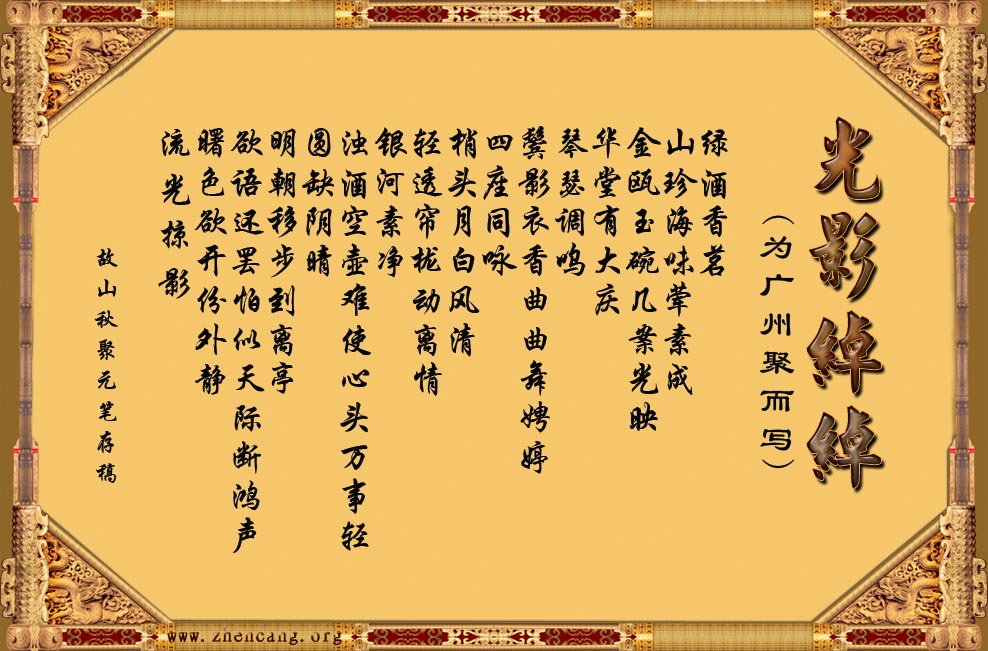 光影綽綽
（为广州聚而写）
绿酒香茗
山珍海味荤素成
金瓯玉碗几案光映
华堂有大庆
琴瑟调鸣
鬓影衣香曲曲舞娉婷
四座同咏
梢头月白风清
轻透帘栊动离情
银河素净
浊酒空壶难使心头万事轻
圆缺阴晴
明朝移步到离亭
欲语还罢怕似天际断鸿声
曙色欲开份外静
流光掠影
故山秋聚元笔存稿
www.zhencang.org